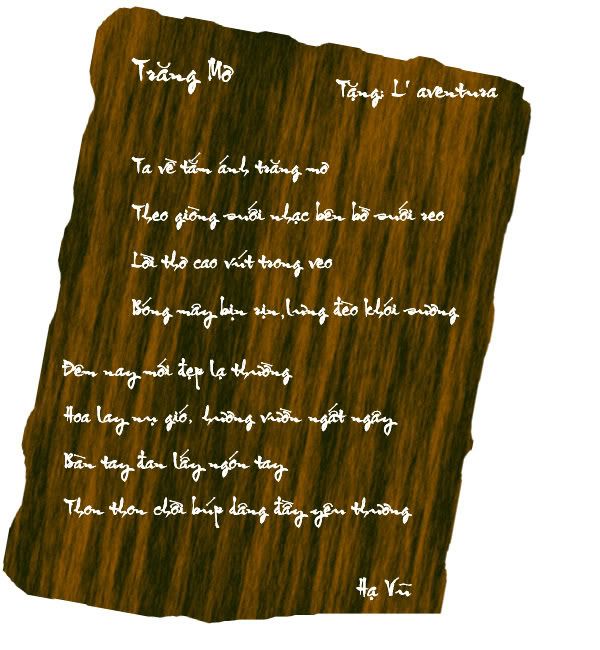 Trăng Mơ
Tặng: L' aventura
Ta về tắm ánh trăng mơ
Theo giòng suối nhạc bên bờ suối reo
Lời thơ cao vút trong veo
Bóng mây bịn rịn, lưng đèo khói sương
Đêm nay mới đẹp lạ thường
Hoa lay nụ gió, hương vườn ngất ngây
Bàn tay đan lấy ngón tay
Thon thon chồi búp dâng đầy yêu thương
Hạ Vũ